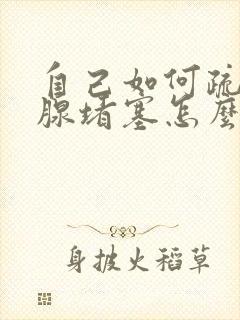 自己如何疏
腺堵塞怎麼
身披火稻草